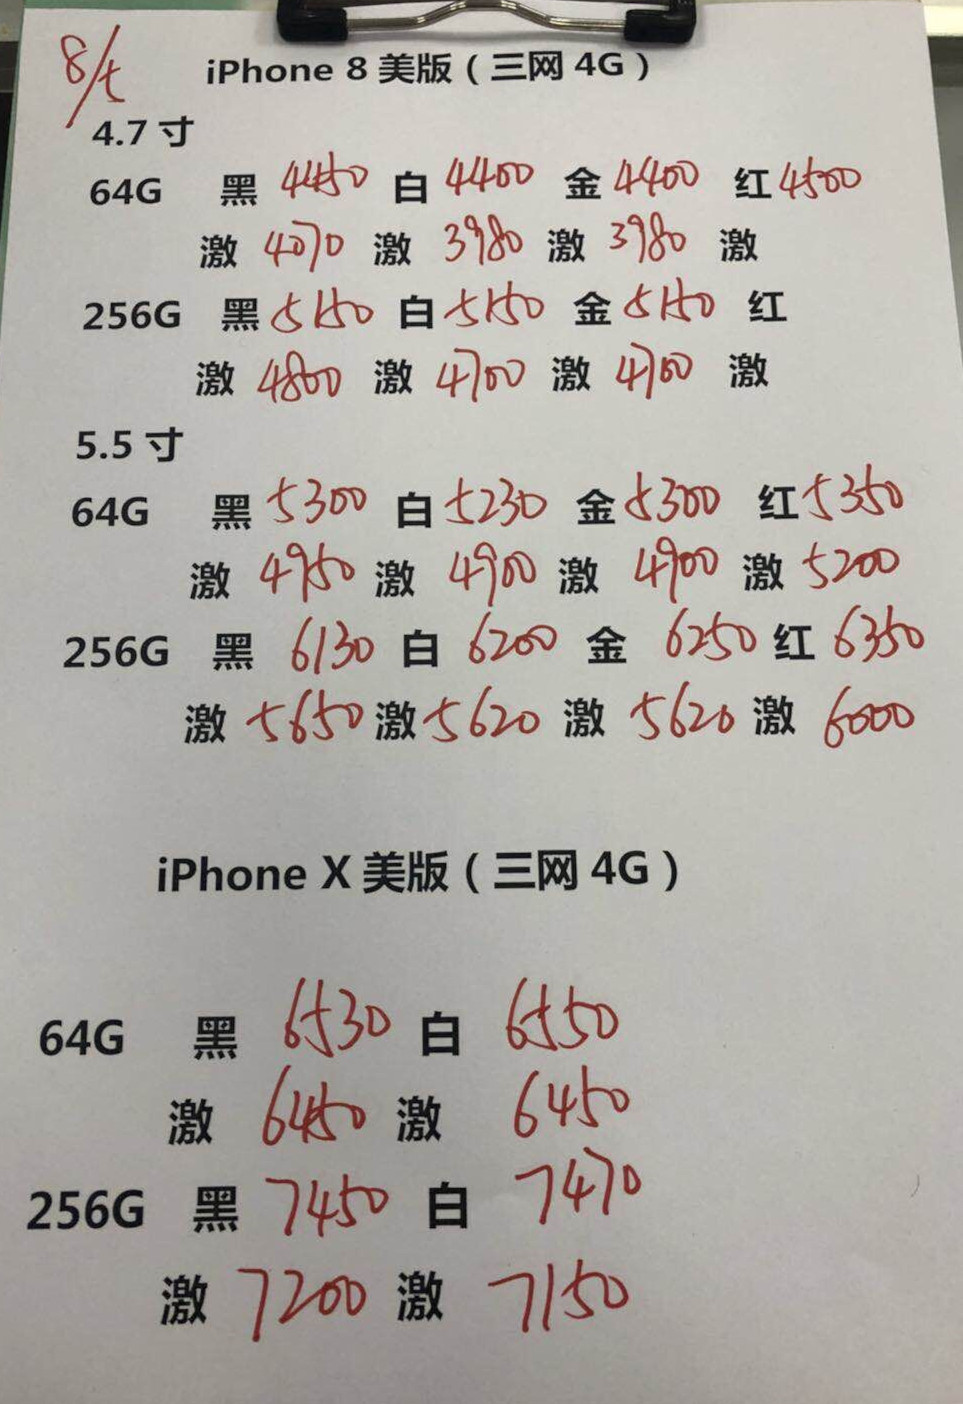 8/5
iPhone 8 美版（三网 4G）
4.7 寸
64G 黑 4450 白 4400 金 4400 红 4500
激 4070 激 3980 激 3980 激
256G 黑 5150 白 5150 金 5150 红
激 4800 激 4700 激 4700 激
5.5 寸
64G 黑 5300 白 5230 金 5300 红 5350
激 4950 激 4900 激 4900 激 5200
256G 黑 6130 白 6200 金 6250 红 6350
激 5650 激 5620 激 5620 激 6000
iPhone X 美版（三网 4G）
64G 黑 6530 白 6550
激 6450 激 6450
256G 黑 7450 白 7470
激 7200 激 7150